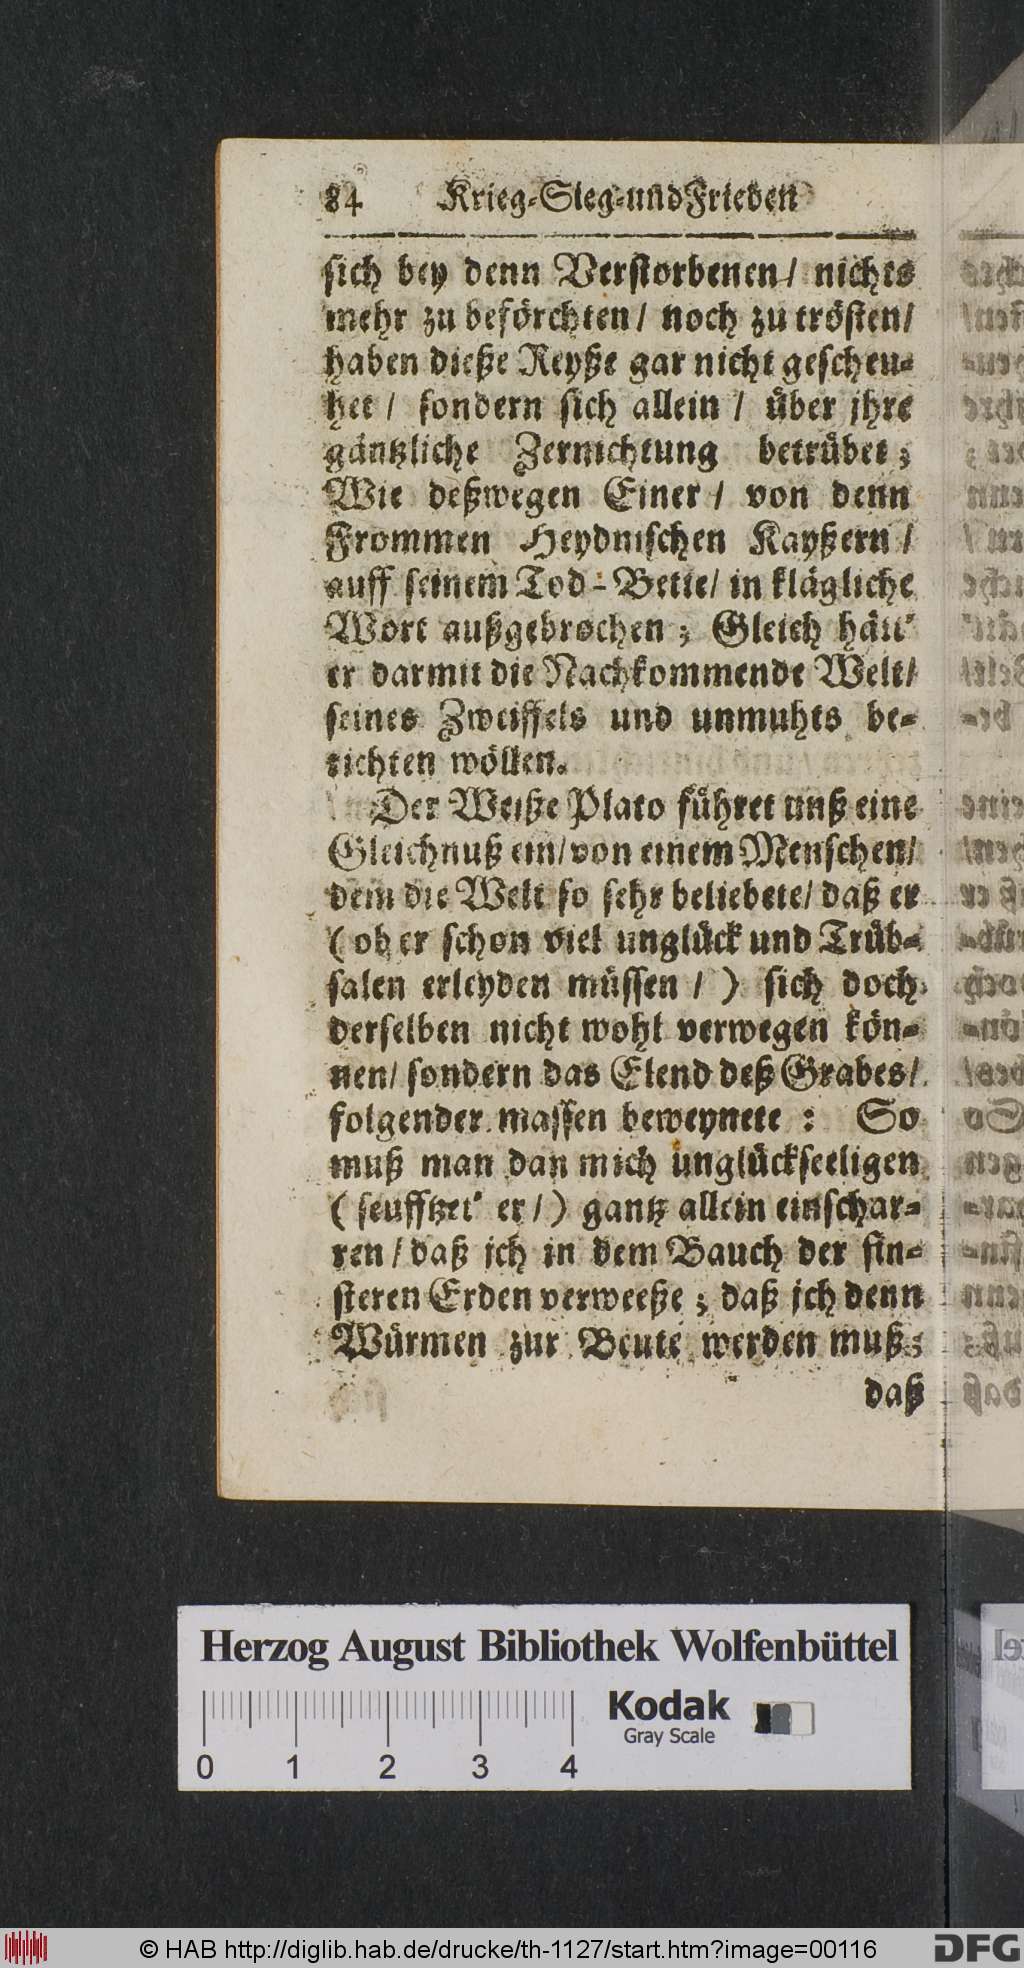 84 Krieg-Sieg-und Frieden
sich bey denn Verstorbenen / nichts
mehr zu beförchten / noch zu trösten /
haben dieße Reyße gar nicht gescheu-
het / sondern sich allein / über jhre
gäntzliche Zernichtung betrübet ;
Wie deßwegen Einer / von denn
Frommen Heydnischen Kayßern /
auff seinem Tod-Bette / in klägliche
Wort außgebrochen ; Gleich hätt'
er darmit die Nachkommende Welt /
seines Zweiffels und unmuhts be-
richten wöllen.
Der Weiße Plato führet unß eine
Gleichnuß ein / von einem Menschen /
dem die Welt so sehr beliebete / daß er
( ob er schon viel unglück und Trüb-
salen erleyden müssen / ) sich doch
derselben nicht wohl verwegen kön-
nen / sondern das Elend deß Grabes /
folgender massen beweynete : So
muß man dan mich unglückseeligen
( seufftzet' er / ) gantz allein einschar-
ren / daß jch in dem Bauch der fin-
steren Erden verweeße ; daß jch denn
Würmen zur Beute werden muß ;
daß
Herzog August Bibliothek Wolfenbüttel
Kodak
Gray Scale
0 1 2 3 4
© HAB http://diglib.hab.de/drucke/th-1127/start.htm?image=00116
DFG